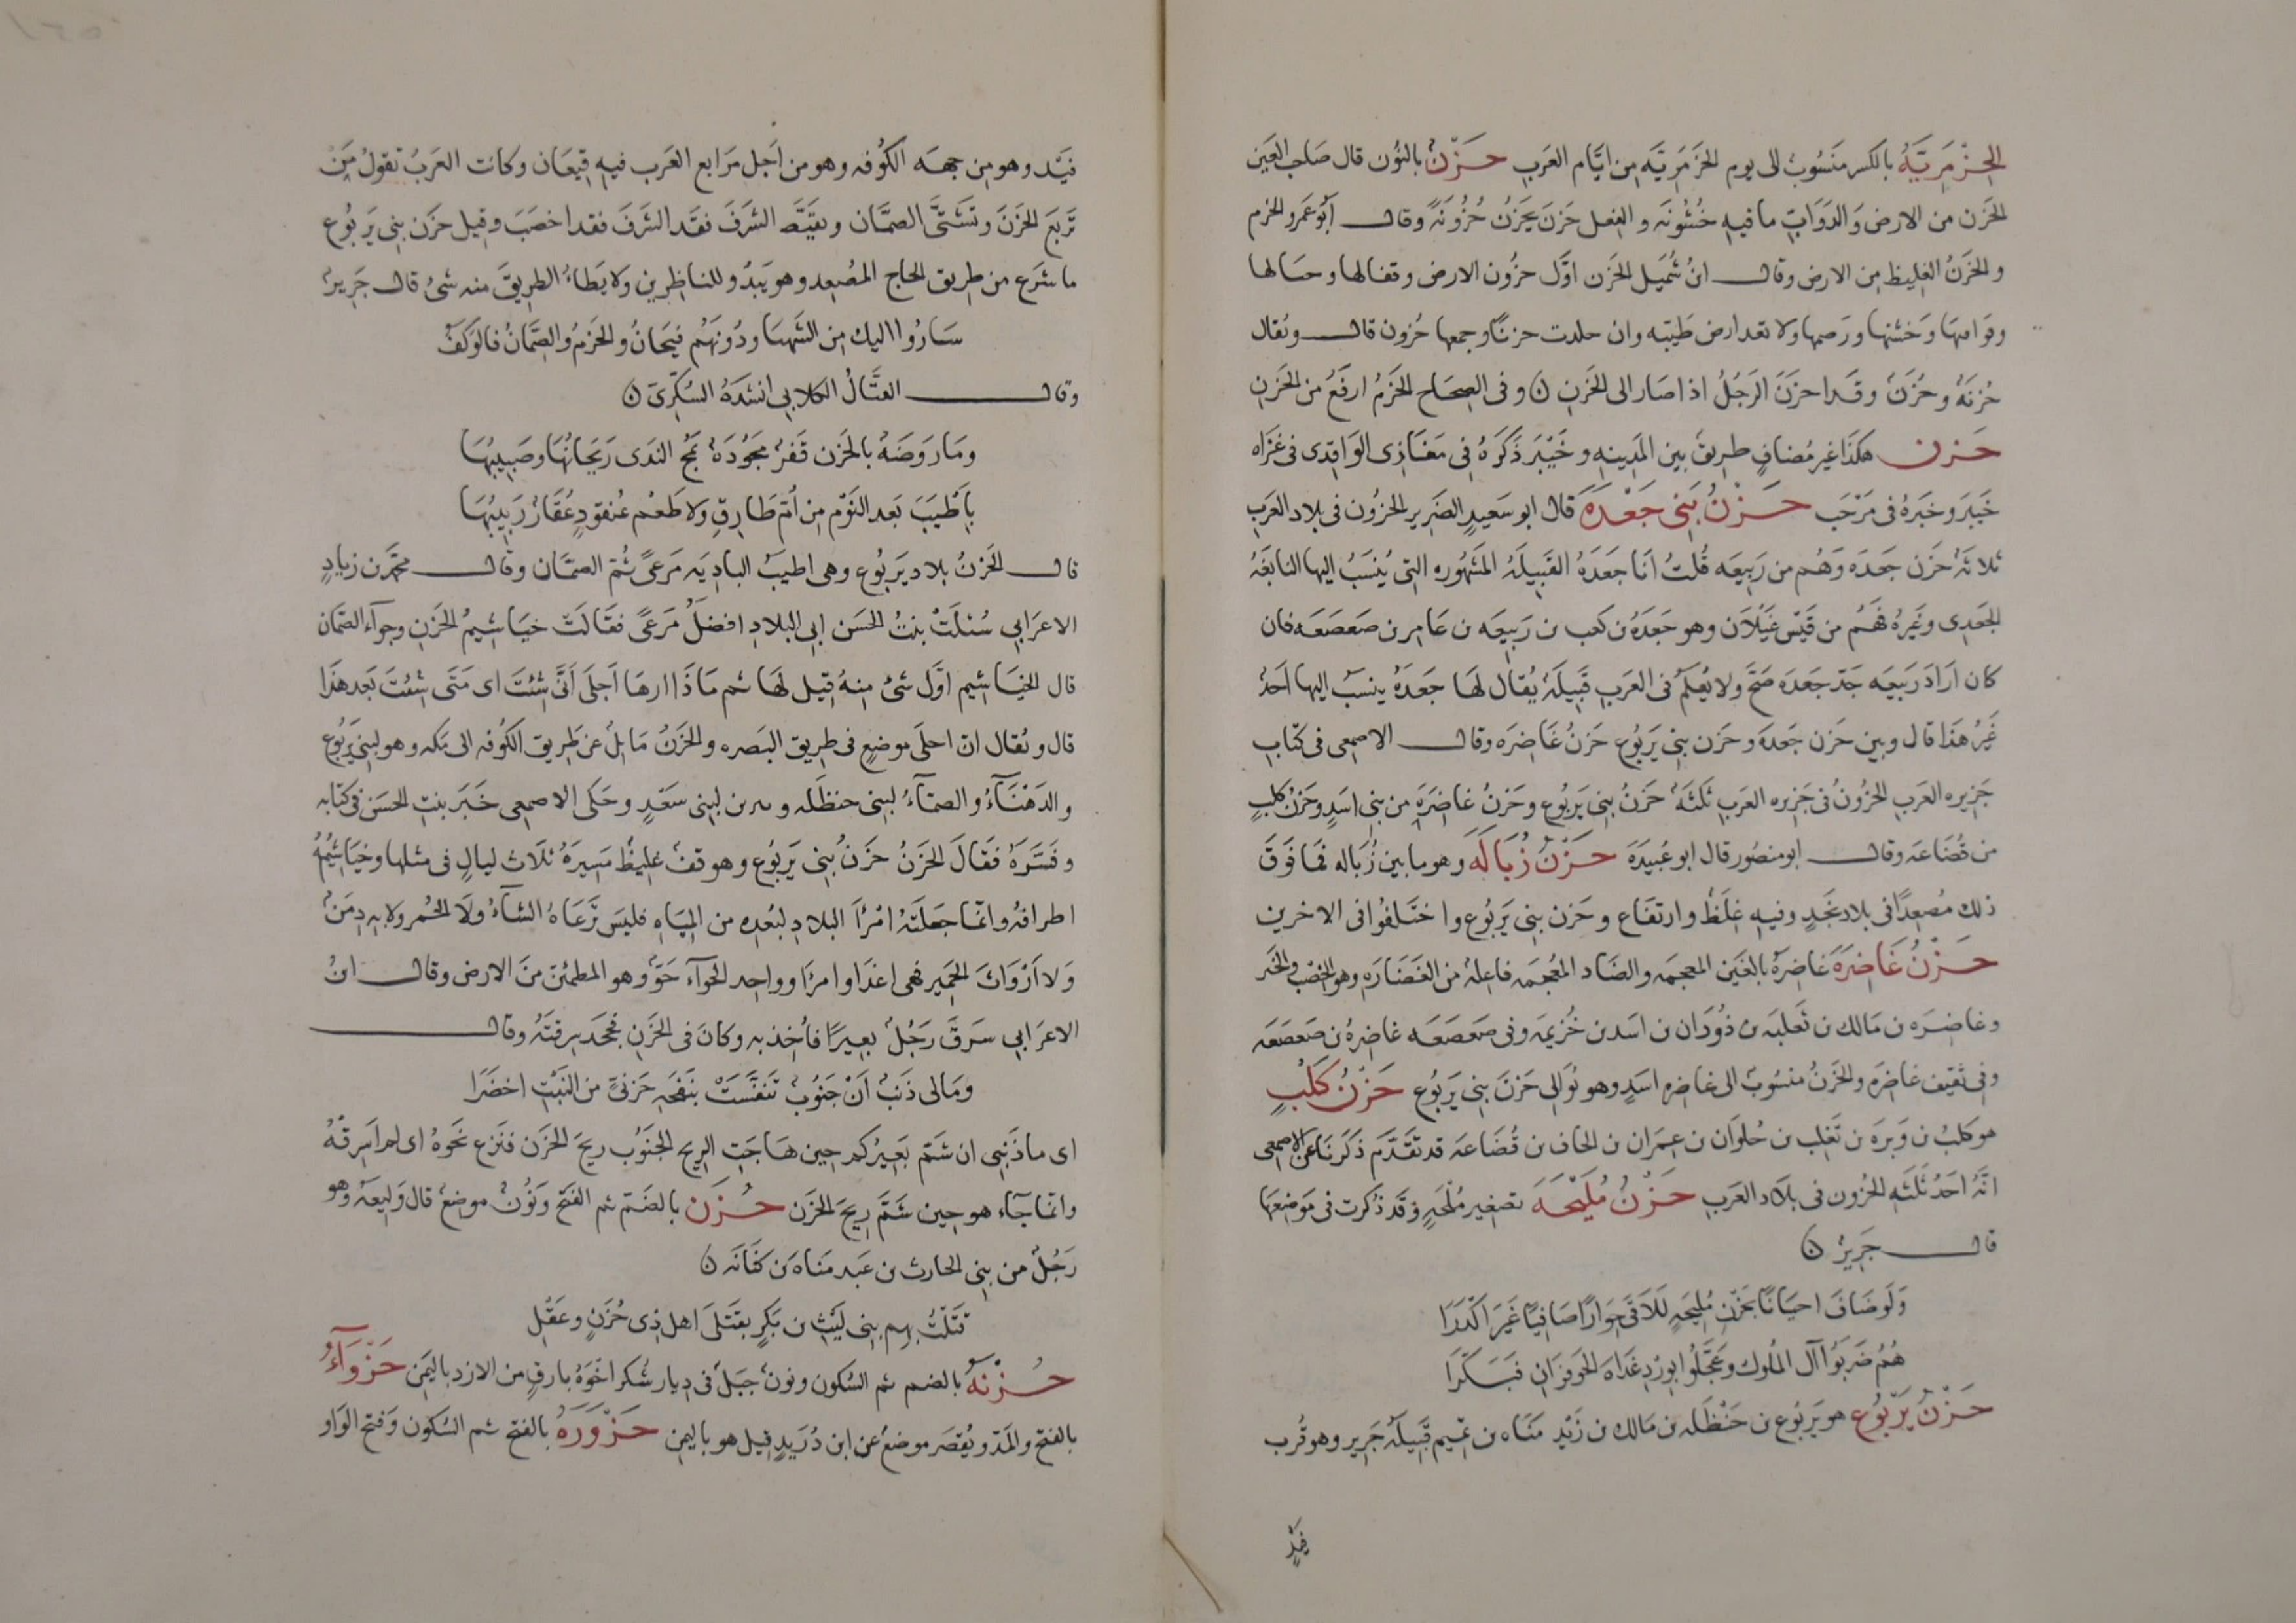 الحِزْمِرِيَّةُ بالكسر منسُوبٌ الى يوم الحَزَمَرِيَّه من ايَّام العَرَب حَزْنٌ بالنُون قال صَاحب العَين
الحَزن من الارض وَالدَوَابّ ما فيهِ خُشُونَه والفِعل حَزنَ يَحزُنُ حُزُونَةً وقال ابُو عَمرو الحَزم
والحَزنُ الغَليظ مِن الارض وقال ابنُ شُمَيل الحَزن اوَّل حزُون الارض وقفافها وجبالها
وقواميها وخشنها ورَضمها ولا تعد ارض طَيّبه وان جلدت حزنًا وجمعها حُزون قال ويُقال
حُزنَةٌ وحُزَنٌ وقَد احزَنَ الرَجُلُ اذا صَار الى الحَزنِ ن وفى الصِحَاح الحَزمُ ارفَعُ من الحَزنِ
حَزن هكَذا غير مُضافٍ طريقٌ بين المَدينهِ وخَيبَر ذَكَرَهُ فى مَغَازى الوَاقِدى فى غزَاه
خَيبَر وخَبَرهُ فى مَرْحَب حَزْنُ بَنِى جَعْدَه قال ابو سَعيدٍ الضَرِير الحزُون فى بلاد العَرَب
ثلاثَهٌ حَزن جَعدَه وَهُم من رَبيعَه قُلتُ انَا جَعَدَهُ القَبيلَهُ المَشهُوره التى يُنسَبُ اليها النابغَهُ
الجَعدِى وغَيرهُ فَهُم من قَيس عَيلَان وهو جَعدَهُ بن كَعب بن رَبيعَه بن عَامِر بن صَعصَعَه فان
كان ارَادَ رَبيعَه جَدّ جَعدَه صَحَّ ولا يُعلَم فى العَرَب قَبيلَهٌ يُقال لهَا جَعدَهُ ينسَبُ اليها احَدٌ
غَيرُ هَذا قال وبين حَزن جَعدَه وحَزن بنِى يَربُوع حَزنُ غَاضِرَه وقال الاصمعى فى كتابِ
جَزيره العَرَب الحزُونُ فى جَزيره العَرَب ثلثَهٌ حَزنُ بنِى يَربُوع وحَزنُ غاضِرَه من بنِى اسَدٍ وحَزنُ كلبٍ
من قُضَاعَه وقال ابو منصُور قال ابو عُبَيدَه حَزْنُ زُبَالَه وهو ما بين زُبَاله فما فَوقَ
ذلك مصُعِدًا فى بلاد نَجَدٍ وفيهِ غِلَظٌ وارتفَاع وحَزن بنِى يَربُوع واختَلفُوا فى الاخرين
حَزْنُ غَاضِرَه غاضِرَهُ بالغَين المعجمَه والضَاد المُعجَمَه فاعِلهٌ من الغَضَارَهِ وهو الخصْب والخَير
وغاضِرَه بن مَالك بن ثَعلبَه بن دُودَان بن اسَد بن خُزَيمَه وفى صَعصَعَه غاضِرهُ بن صَعصَعَه
وفى ثقيف غاضِرَه والحَزنُ منسُوبٌ الى غاضِره اسَدٍ وهو يُوَالى حَزنَ بنِى يَربُوع حَزنُ كَلْبٍ
هو كلبُ بن وَبرَه بن تَغلِب بن حُلوَان بن عِمرَان بن الحَاف بن قُضَاعَه قد تقَدَّم ذكرنَا عَن الاصمعى
انَّهُ احَدُ ثلثَهِ الحزُون فى بلَاد العَرَب حَزْنُ مُلَيْحَه تصغير مُلْحَهٍ وقَد ذُكرت فى مَوضِعهَا
قال جَرِيرٌ ن
وَلَو ضَافَ احيَانًا بحَزنِ مُليحَهٍ لَلَاقَى جِوَارًا صَافِيًا غَيرَ اكْدَرَا
هُمُ ضَربُوا آل المُلوك وعَجَّلُوا بوِرْدِ غَدَاهَ الحَوفزَانِ فَبَكَّرَا
حَزْنُ يَرْبُوع هو يَربُوع بن حَنْظَلَه بن مَالك بن زَيْدِ مَنَاه بن تميم قَبيلَهُ جَرِير وهو قُرب
فَيْدٍ
فَيْد وهو مِن جِهَه الكُوفه وهو من اجَل مرَابع العَرَب فيهِ قيعَان وكانت العَرَبُ تقولُ مَن
تَربَع الحَزنَ وتَشَتَّى الصمَّان وتَقيَّظ الشَرَفَ فقَد اخصَبَ وقيل حَزن بنِى يَربُوع
ما شَرَع من طريق الحاج المصُعِد وهو يَبدُو للناظِرين ولا يَطَاءُ الطَريقَ منه شئٌ قال جَرِيرٌ
سَارُوا اليك مِن الشَهبَا ودُونَهُم فيحَانُ والحَزمُ والصِمَّانُ فالوَكَفُ
وقال القتَّالُ الكلابى انشَدَهُ السُكَّرِىّ ن
ومَا رَوضَهٌ بالحَزن قَفرٌ مَجُودَهٌ يَمُجّ النَدَى رَيحَانُهَا وصَبيبُهَا
بِاَطيَبَ بَعد النَوم مِن اُمّ طَارِقٍ ولا طَعْم عُنقُودٍ عُقَارٌ زَبيبُهَا
قال الحَزنُ بلاد يَربُوع وهى اطيبُ البادِيَه مَرعًى ثمّ الصمَّان وقال محمّد بن زيادٍ
الاعرَابى سُئلَتْ بنتُ الحسَن اىّ البلادِ افضَلُ مَرعًى فقَالَتْ خيَاشيمُ الحَزن وجوآء الصمَّان
قال الخيَاشيم اوَّل شئ منهُ قيل لهَا ثم مَاذَا اراهَا اَجلَى اَنَّى شئْتَ اى مَتَى شئتَ بَعد هَذَا
قال ويُقال انّ اجلَى موضِعٍ فى طريق البَصره والحَزنُ مَايلٌ عَن طَريق الكُوفه الى مَكه وهو لبنِى يَربُوع
والدَهنَاءُ والصمّآءُ لبنِى حنظَله و لبنِى سَعْدٍ وحَكى الاصمعى خَبَر بنت الحسَن فى كتابه
وفَسَّرَهُ فقَالَ الحَزنُ حَزنُ بنِى يَربُوع وهو قفٌ غليظٌ مَسيرَهُ ثلَاث ليالٍ فى مثلها وخيَاشيمُهُ
اطرافهُ وانّما جعَلتهُ امْرَاَ البلادِ لبُعدِه من المِيَاهِ فليسَ تَرعَاهُ الشآءُ ولَا الحُمر ولا بهِ دِمَنٌ
وَلا اَرْوَاثُ الحَمير فهى اغذَا وامرَا وواحِد الجَوآء جَوّ وهو المطمئنّ منَ الارض وقال ابنُ
الاعرَابى سَرَقَ رَجُلٌ بعيرًا فأُخذ به وكانَ فى الحَزن فجَحَد سِرقتَهُ وقال
ومَا لى ذَنبٌ اَنْ جَنوُبٌ تنَفَّسَتْ بنَفحَهِ حَزنىٍّ من النَبْتِ اخضَرَا
اى ما ذَنبِى ان شَمّ بَعِيرُكم حين هَاجَتِ الرِيح الجَنُوب رِيحَ الحَزن فنَزع نَحوَهُ اى لم اَسرِقهُ
وانّما جآء هو حين شَمَّ رِيحَ الحَزن حُزَن بالضَمّ ثم الفَتح وَنُونٌ موضعٌ قال وَليعَهُ وهو
رَجُلٌ من بنِى الحَارث بن عَبد مَنَاه بن كنَانَه ن
قتَلتُ بهِم بنِى لَيْثِ بن بَكرٍ بقَتلَى اهل ذِى حُزَنٍ وعَقْلِ
حُزْنَهُ بالضم ثم السُكون ونُونٌ جبَلٌ فى دِيار شُكر اخوَهُ بارقٍ من الازد باليَمَن حَزْوَآءُ
بالفتح والمَدّ ويُقصَر موضعٌ عن ابن دُرَيدٍ قيل هو باليمن حَزْوَرَهُ بالفتح ثم السُكون وَفتح الوَاو